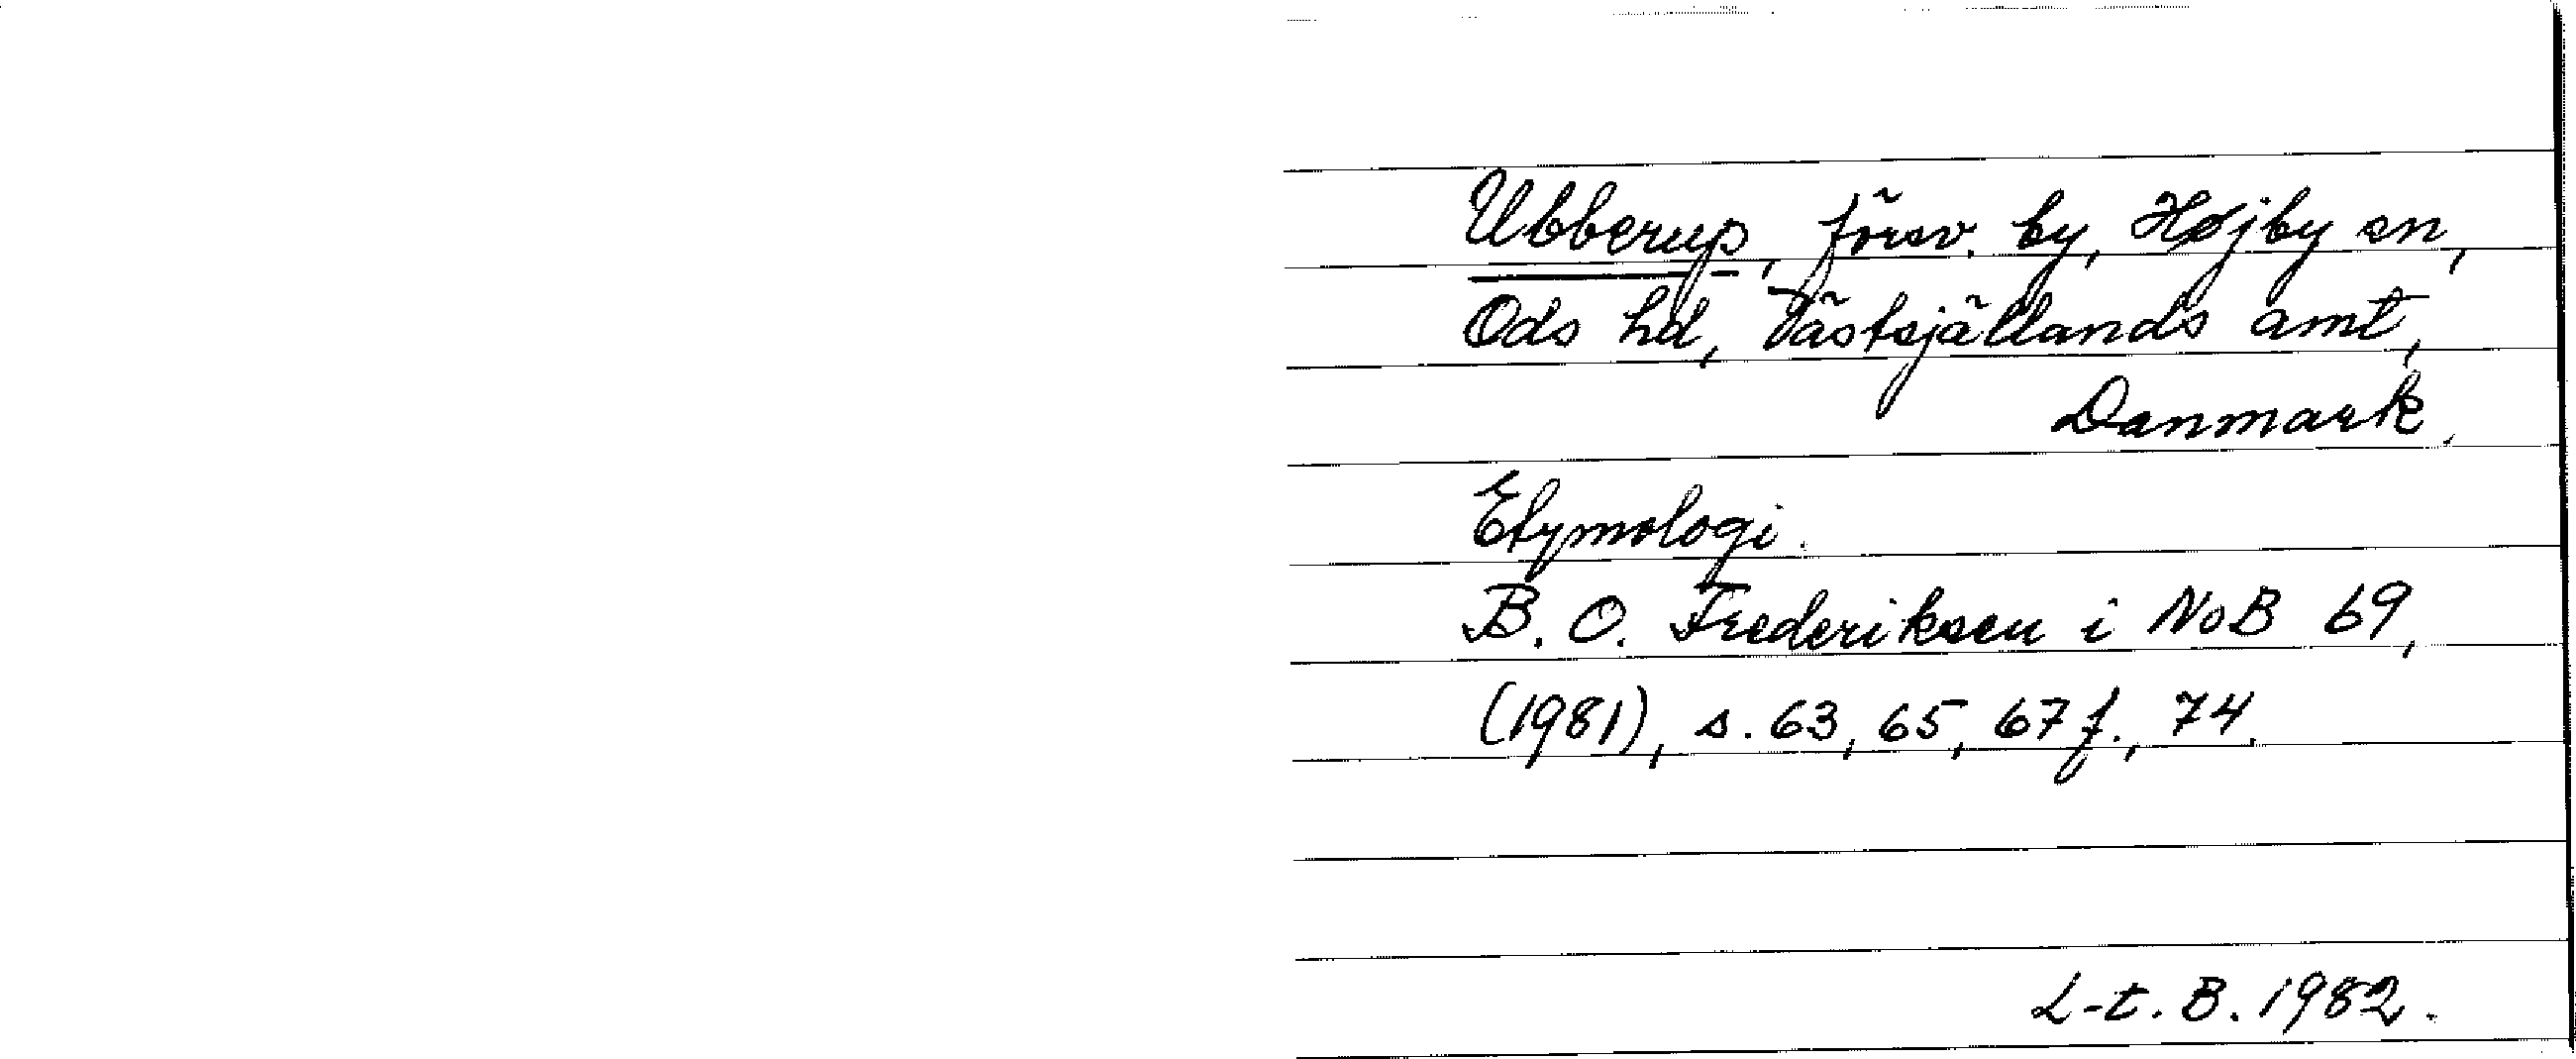 Ubberup, försv. by, Højby sn,
Ods hd, Västsjällands amt,
Danmark.
Etymologi.
B. O. Frederiksen i NoB 69,
(1981), s. 63, 65, 67 f., 74.
L-t. B. 1982.